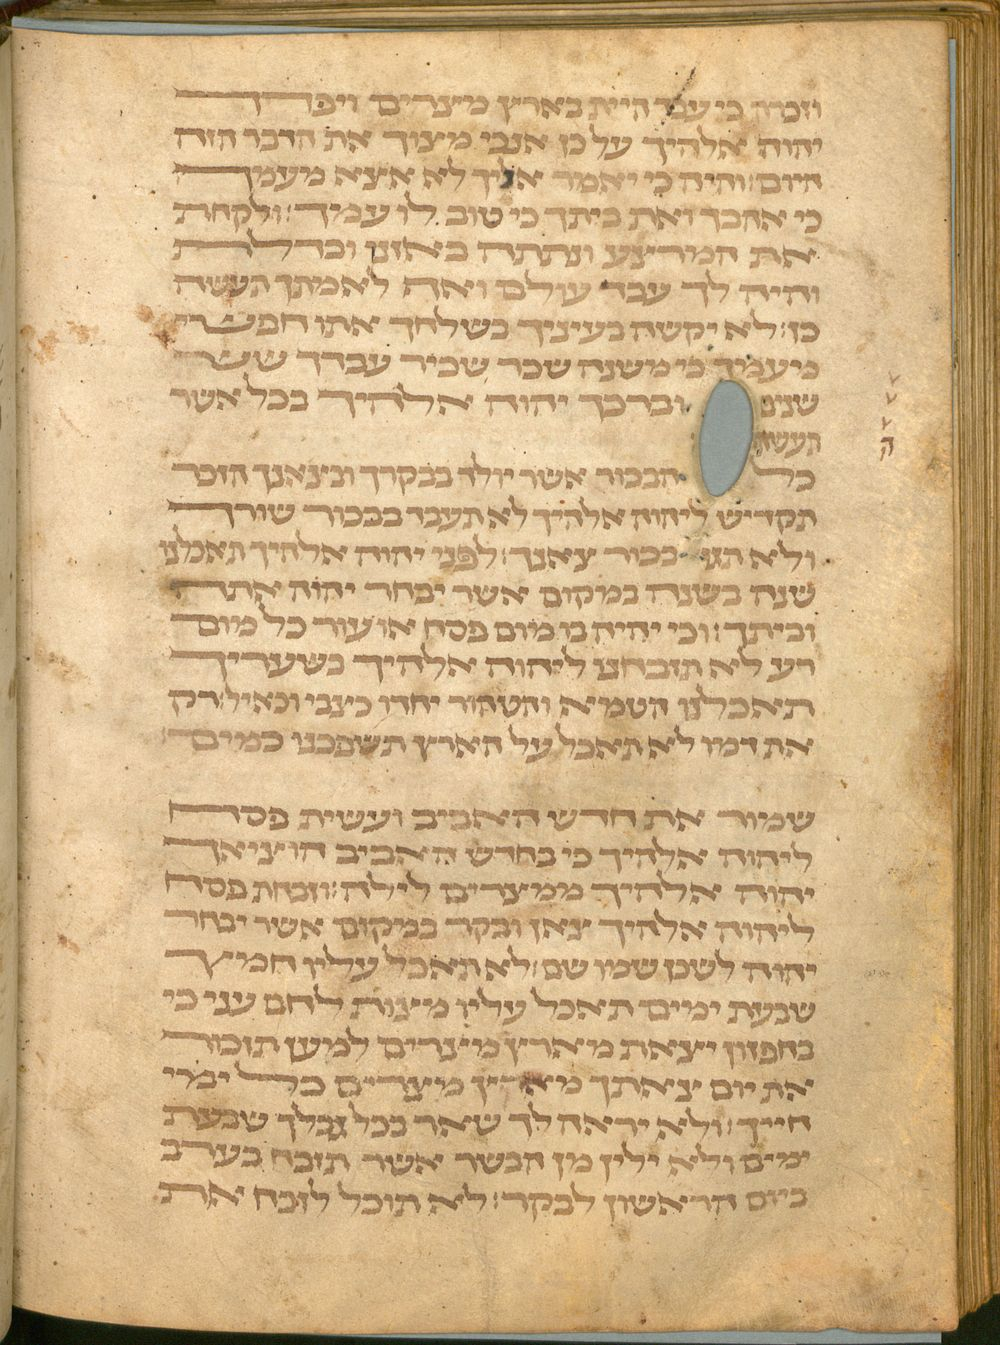 וזכרת כי עבד היית בארץ מצרים ויפדך
יהוה אלהיך על כן אנכי מצוך את הדבר הזה
היום׃ והיה כי יאמר אליך לא אצא מעמך
כי אהבך ואת ביתך כי טוב לו עמך׃ ולקחת
את המרצע ונתתה באזנו ובדלת
והיה לך עבד עולם ואף לאמתך תעשה
כן׃ לא יקשה בעיניך בשלחך אתו חפשי
מעמך כי משנה שכר שכיר עבדך שש
שנים וברכך יהוה אלהיך בכל אשר
תעשה
כל הבכור אשר יולד בבקרך ובצאנך הזכר
תקדיש ליהוה אלהיך לא תעבד בבכור שורך
ולא תגז בכור צאנך׃ לפני יהוה אלהיך תאכלנו
שנה בשנה במקום אשר יבחר יהוה אתה
וביתך׃ וכי יהיה בו מום פסח או עור כל מום
רע לא תזבחנו ליהוה אלהיך בשעריך
תאכלנו הטמא והטהור יחדו כצבי וכאיל׃ רק
את דמו לא תאכל על הארץ תשפכנו כמים׃
שמור את חדש האביב ועשית פסח
ליהוה אלהיך כי בחדש האביב הוציאך
יהוה אלהיך ממצרים לילה׃ וזבחת פסח
ליהוה אלהיך צאן ובקר במקום אשר יבחר
יהוה לשכן שמו שם׃ לא תאכל עליו חמץ
שבעת ימים תאכל עליו מצות לחם עני כי
בחפזון יצאת מארץ מצרים למען תזכור
את יום צאתך מארץ מצרים כל ימי
חייך׃ ולא יראה לך שאר בכל גבלך שבעת
ימים ולא ילין מן הבשר אשר תזבח בערב
ביום הראשון לבקר׃ לא תוכל לזבח את